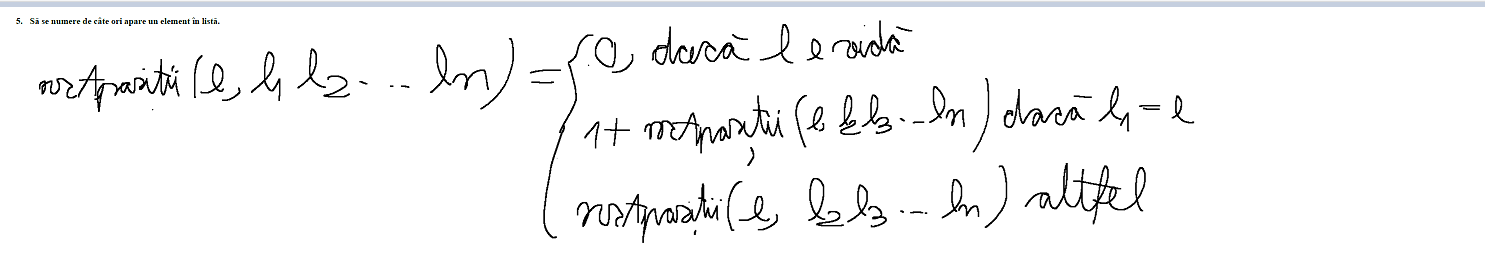 5. Să se numere de câte ori apare un element în listă.
nrApariții(e, l1 l2 ... ln) = { 0, dacă l e vidă
1 + nrApariții(e, l2 l3 ... ln) dacă l1 = e
nrApariții(e, l2 l3 ... ln) altfel